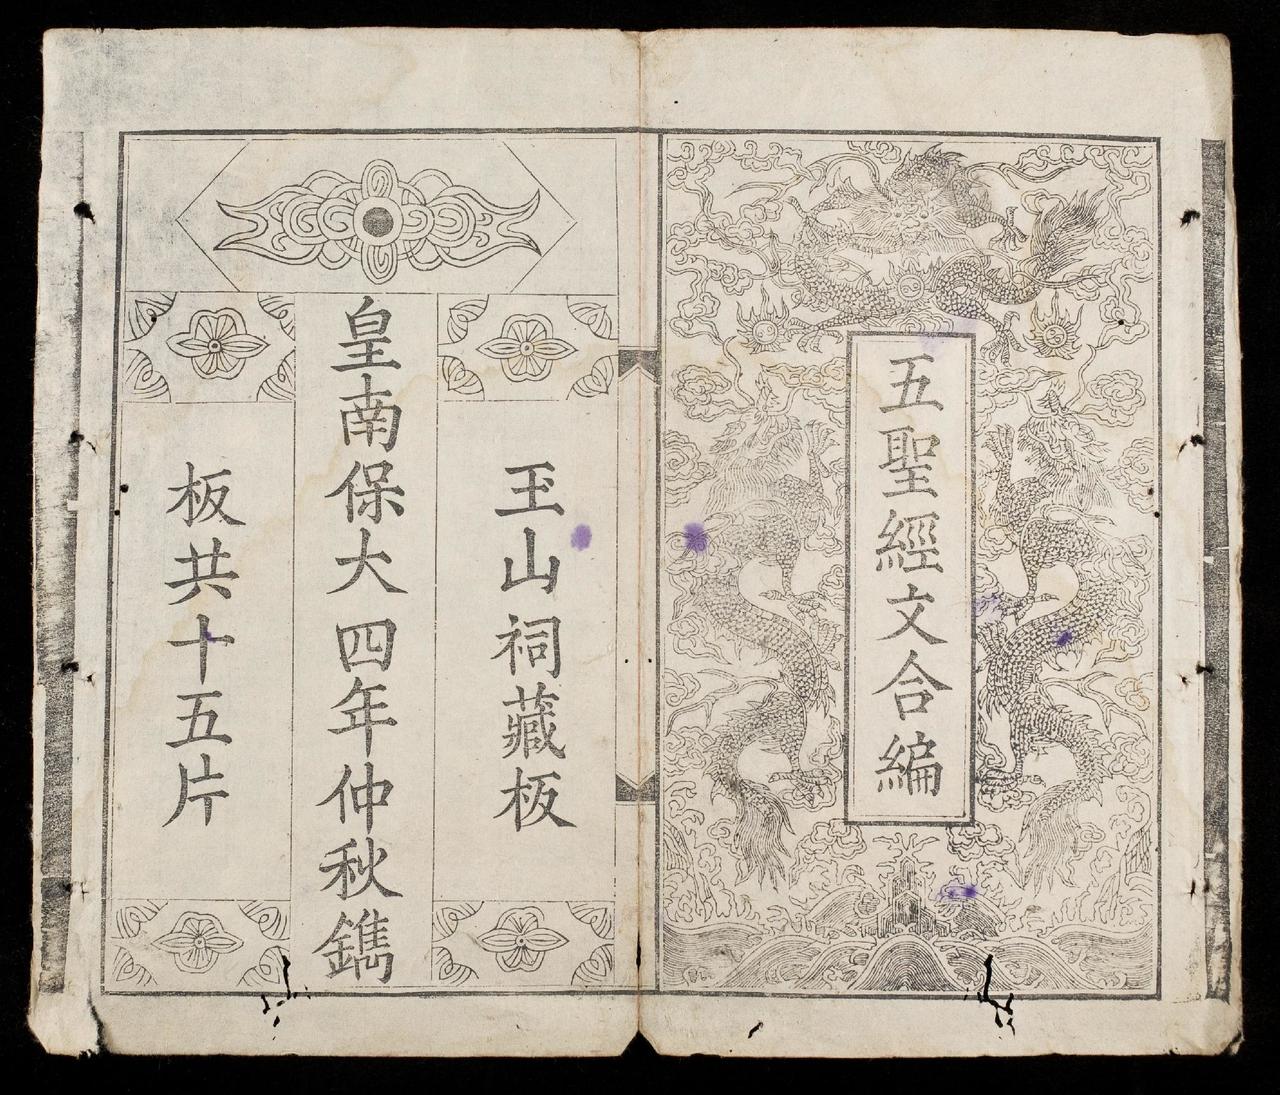 五聖經文合編
玉山祠藏板
皇南保大四年仲秋鐫
板共十五片